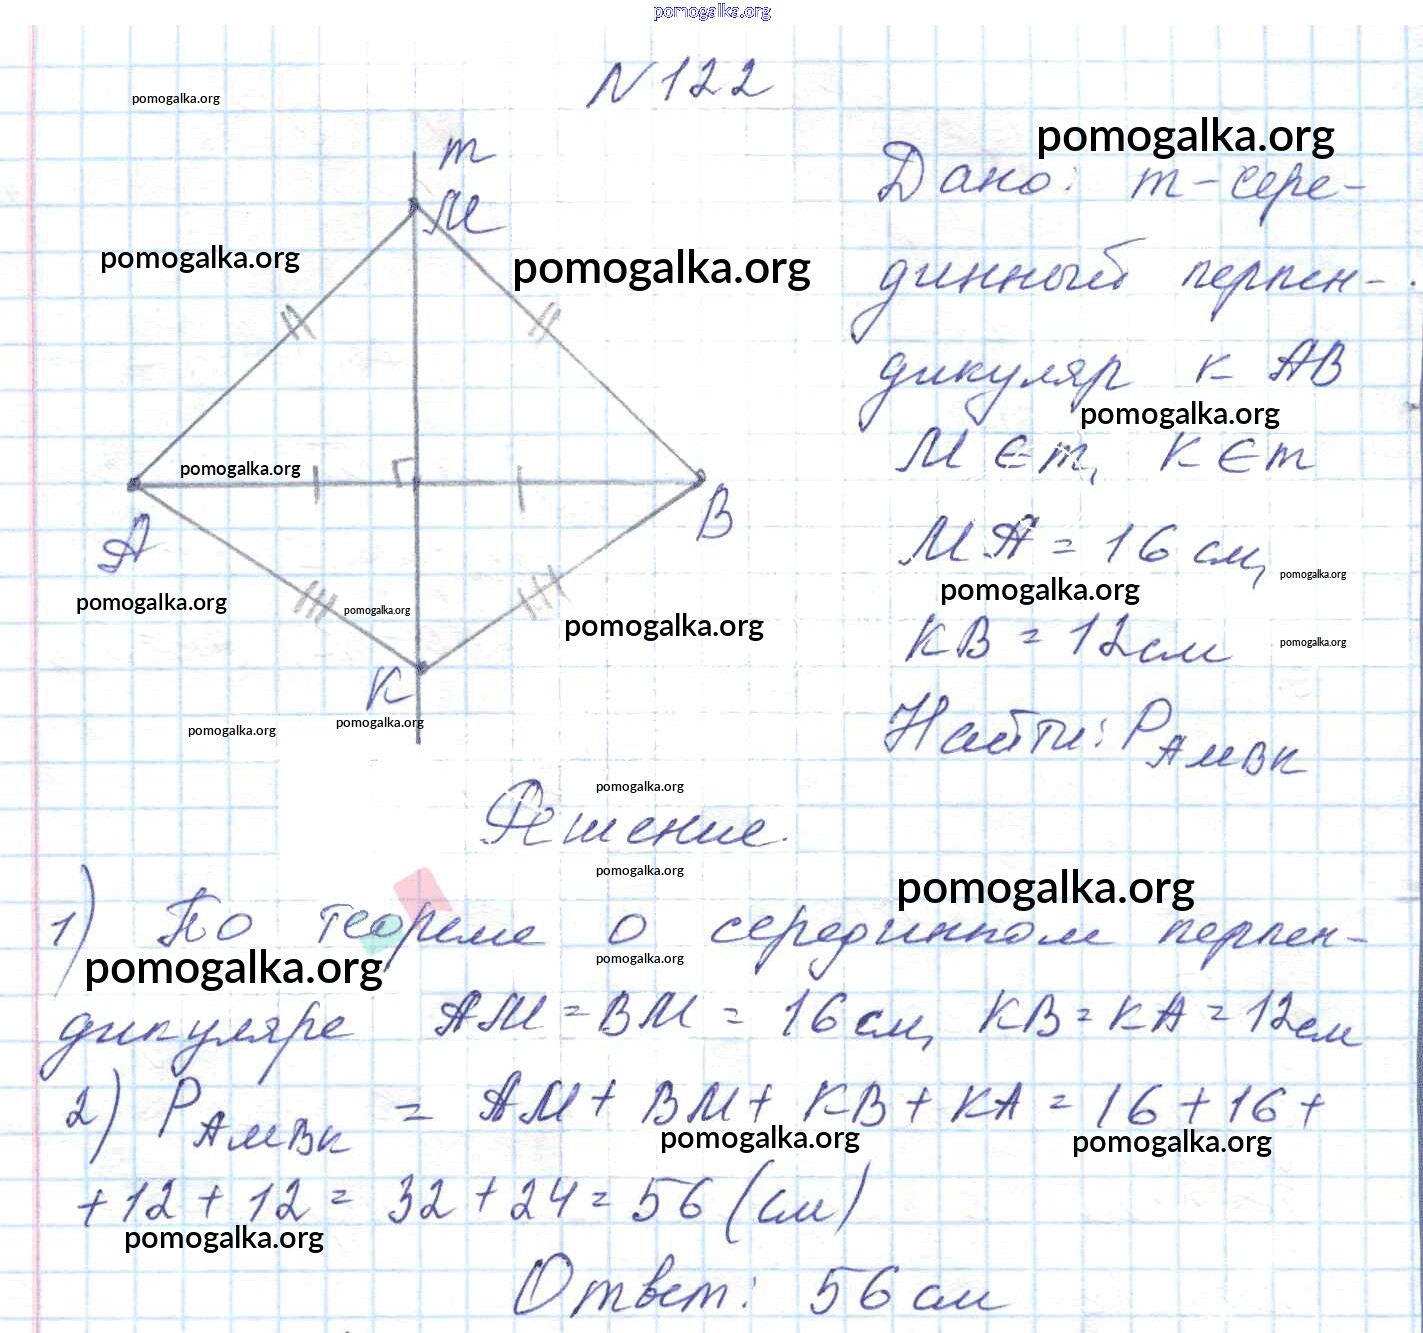 pomogalka.org
N 122
pomogalka.org
pomogalka.org
m
Дано: m - сере-
M
pomogalka.org
pomogalka.org
динный перпен-
дикуляр к AB
pomogalka.org
M ∈ m, K ∈ m
pomogalka.org
A
B
MA = 16 см,
pomogalka.org
pomogalka.org
pomogalka.org
pomogalka.org
pomogalka.org
KB = 12 см
pomogalka.org
K
pomogalka.org
pomogalka.org
Найти: P AMBK
pomogalka.org
Решение.
pomogalka.org
pomogalka.org
1) По теореме о серединном перпен-
pomogalka.org
pomogalka.org
дикуляре AM = BM = 16 см, KB = KA = 12 см
2) P AMBK = AM + BM + KB + KA = 16 + 16 +
pomogalka.org
pomogalka.org
+ 12 + 12 = 32 + 24 = 56 (см)
pomogalka.org
Ответ: 56 см